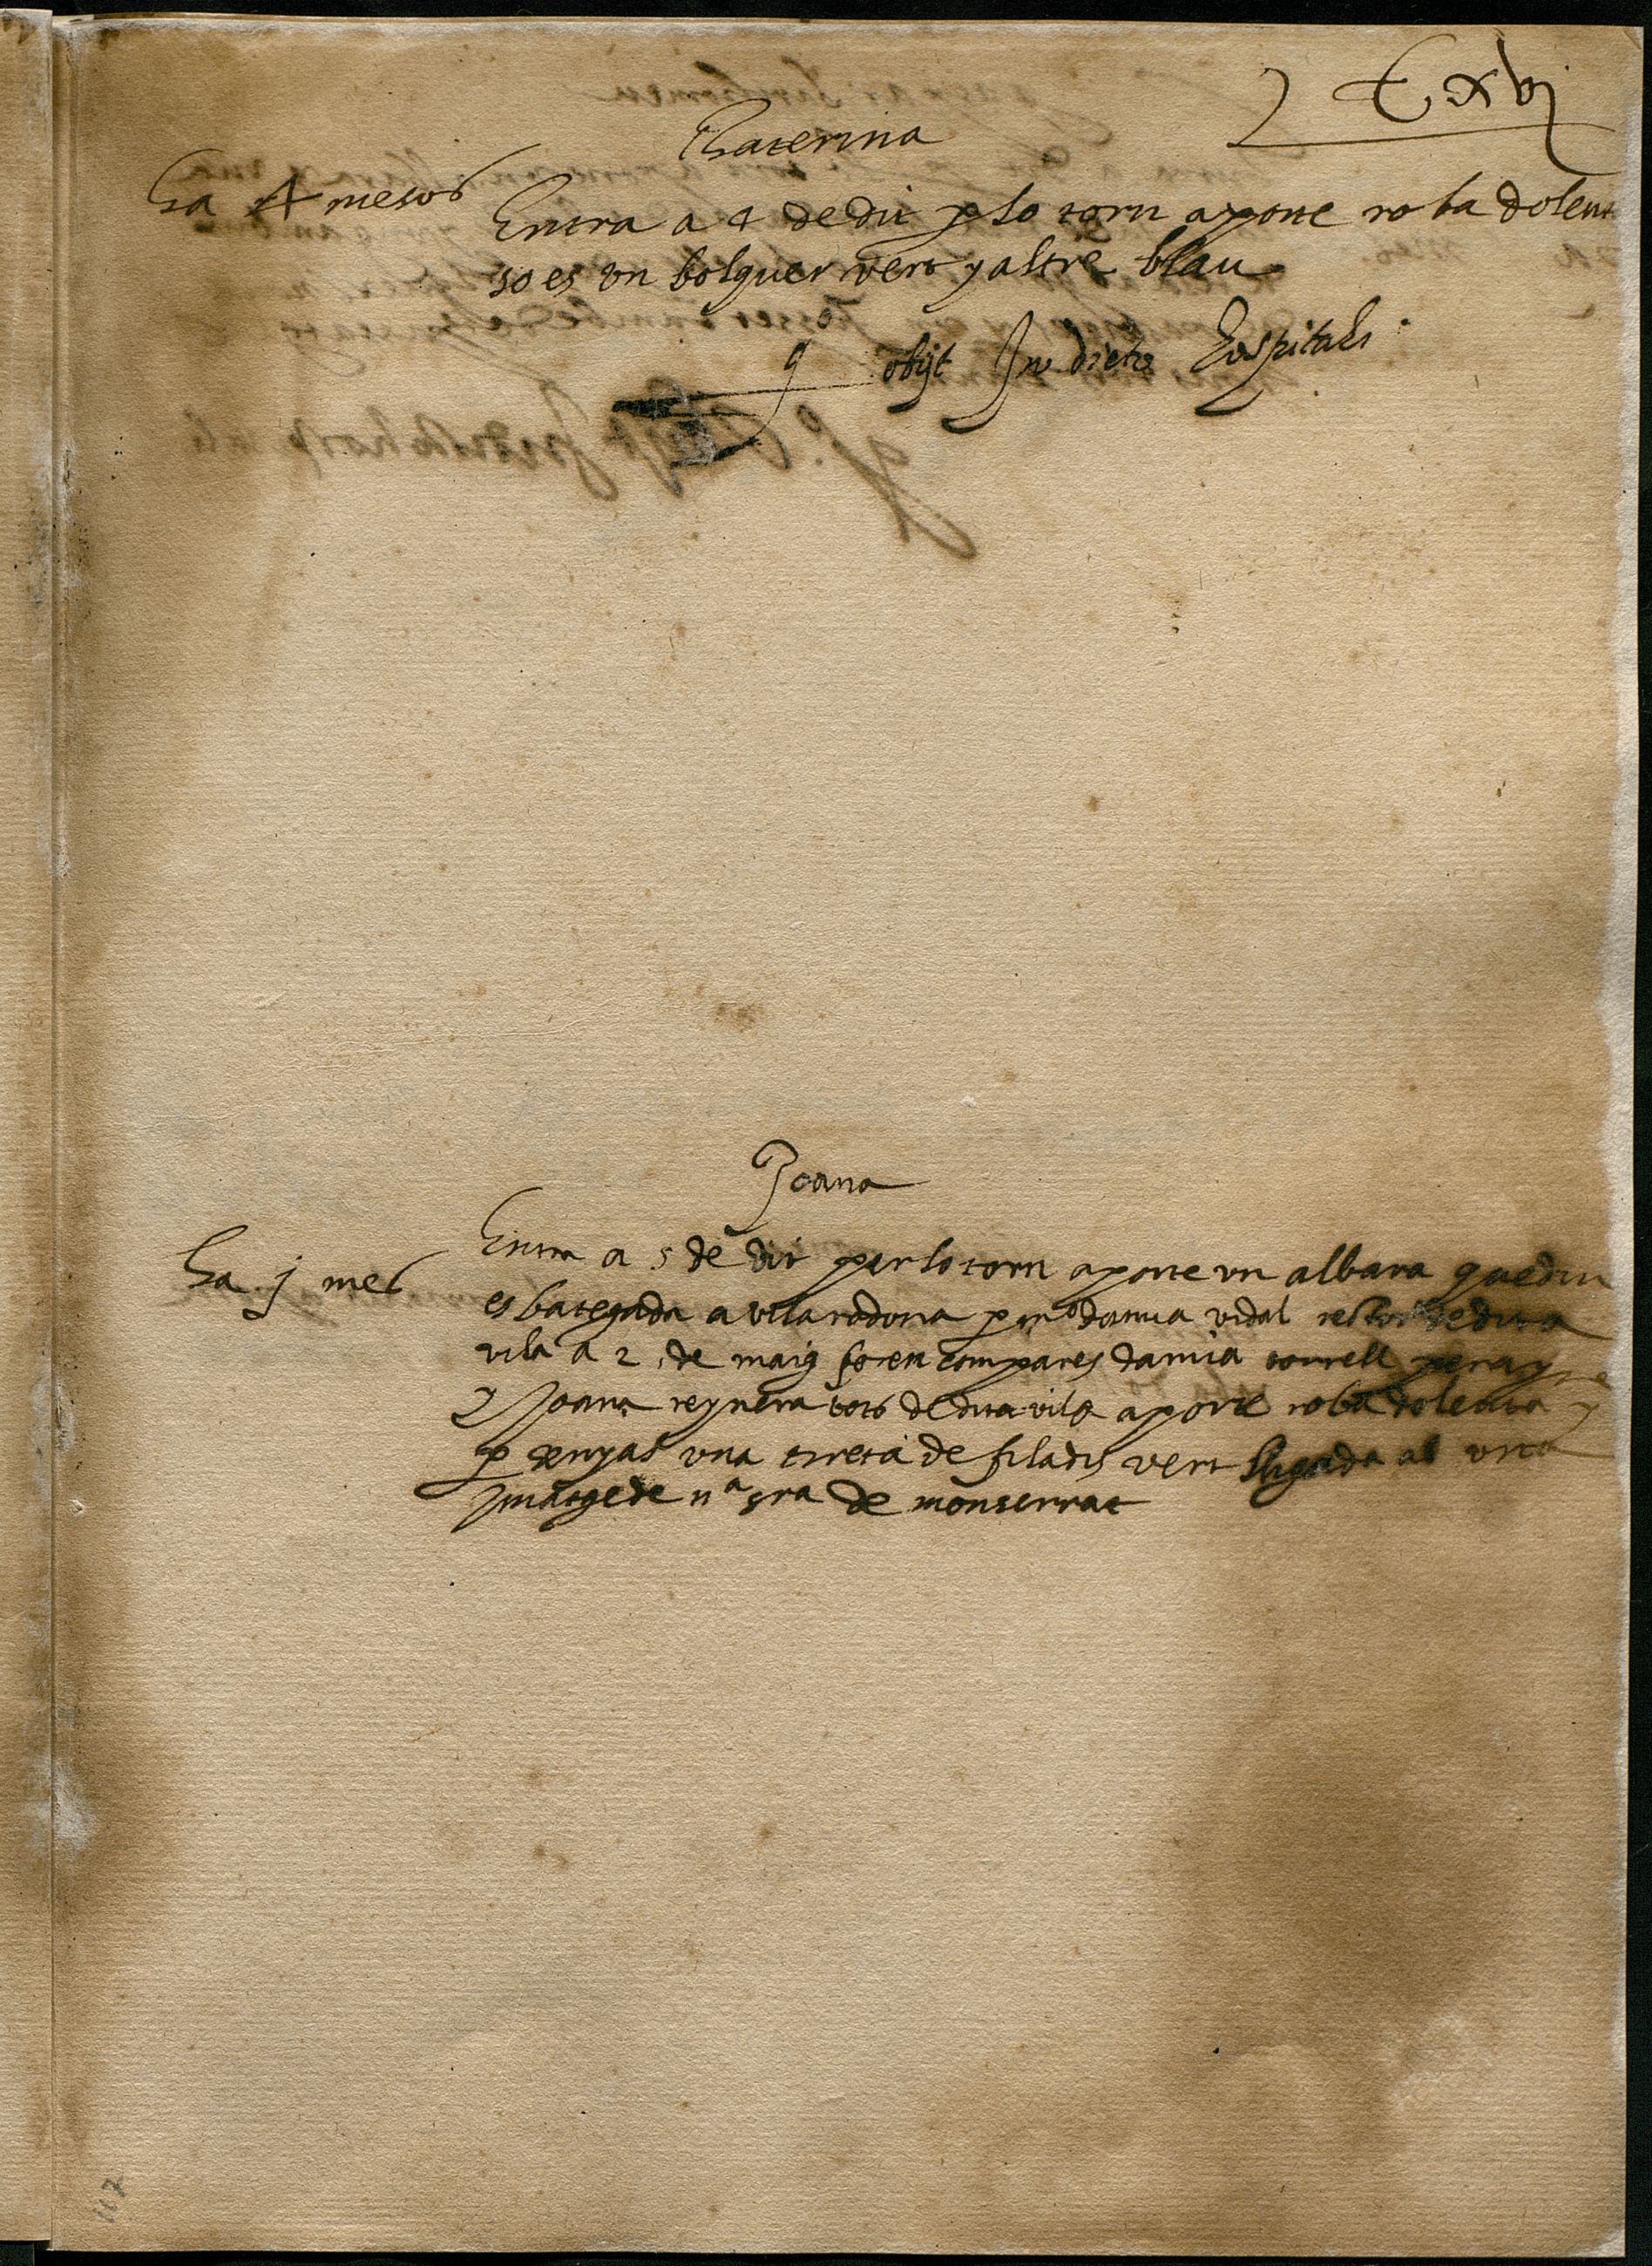 Cxvj
Caterina
ha 4 mesos
Entra a 4 de dit p lo torn aporte roba dolent
so es vn bolquer vert y altre blau
obijt In dicto hospitali
Joana
ha j mes
Entra a 5 de dit per lo torn aporte vn albara que diu
es bategada a vilarodona p mº damia vidal rector de dita
vila a 2 de maig foren compares damia torrell perayre
y Joana reynera tots de dita vila aporte roba dolenta y
p senyas vna tireta de filadis vert lligada ab vna
ymatge de nª sra de monserrat
117